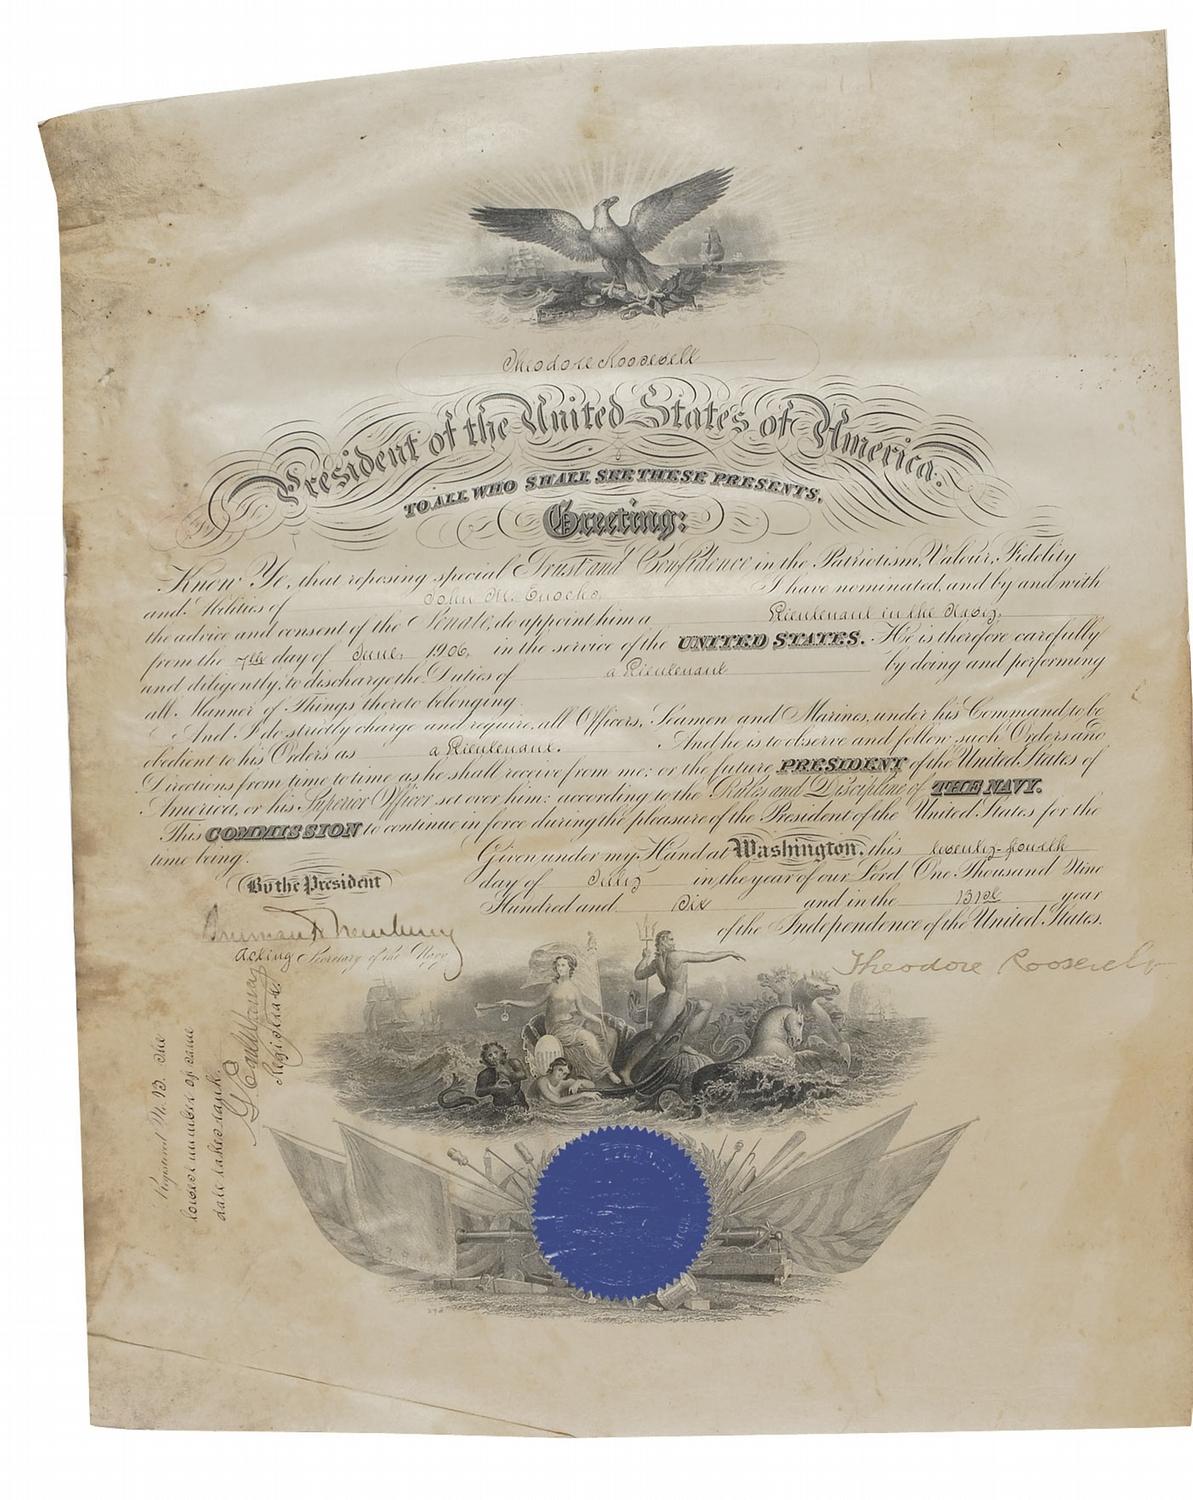 Theodore Roosevelt
President of the United States of America.
TO ALL WHO SHALL SEE THESE PRESENTS,
Greeting:
Know Ye, that reposing special Trust and Confidence in the Patriotism, Valour, Fidelity
and Abilities of John M. Enochs, I have nominated, and by and with
the advice and consent of the Senate, do appoint him a Lieutenant in the Navy,
from the 7th day of June, 1906, in the service of the UNITED STATES. He is therefore carefully
and diligently to discharge the Duties of a Lieutenant by doing and performing
all Manner of Things thereto belonging.
And I do strictly charge and require all Officers, Seamen and Marines, under his Command, to be
obedient to his Orders as a Lieutenant. And he is to observe and follow such Orders and
Directions from time to time as he shall receive from me, or the future PRESIDENT of the United States of
America, or his Superior Officer set over him, according to the Rules and Discipline of THE NAVY.
This COMMISSION to continue in force during the pleasure of the President of the United States for the
time being.
Given under my Hand at Washington, this twenty-fourth
day of July in the year of our Lord One Thousand Nine
Hundred and Six and in the 131st year
of the Independence of the United States.
By the President
Theodore Roosevelt
Truman H. Newberry
Acting Secretary of the Navy
Registrar.
Registered No. 93. The
lowest number of same
date takes rank.